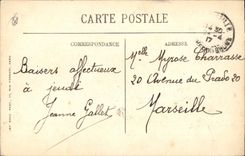 CARTE POSTALE
CORRESPONDANCE
ADRESSE
Baisers affectueux
à jeudi
Jeanne Gallet
Melle Myrose Charrasse
20 Avenue du Prado 20
Marseille